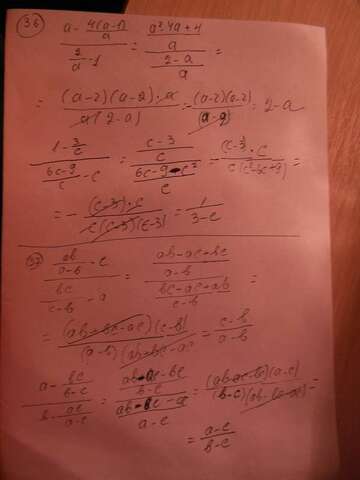 36
(a - 4(a-1)/a) / (2/a - 1) = ((a² - 4a + 4)/a) / ((2-a)/a) =
= (a-2)(a-2)·a / a(2-a) = (a-2)(a-2) / (a-2) = 2-a
(1 - 3/c) / ((6c-9)/c - c) = ((c-3)/c) / ((6c-9-c²)/c) = (c-3)·c / c(c²-6c+9) =
= - (c-3)·c / c(c-3)(c-3) = 1/(3-c)
37
(ab/(a-b) - c) / (bc/(c-b) - a) = ((ab-ac+bc)/(a-b)) / ((bc-ac+ab)/(c-b)) =
= (ab+bc-ac)(c-b) / (a-b)(ab+bc-ac) = (c-b)/(a-b)
(a - bc/(b-c)) / (b - ac/(a-c)) = ((ab-ac-bc)/(b-c)) / ((ab-bc-ac)/(a-c)) = (ab-ac-bc)(a-c) / (b-c)(ab-bc-ac) =
= (a-c)/(b-c)